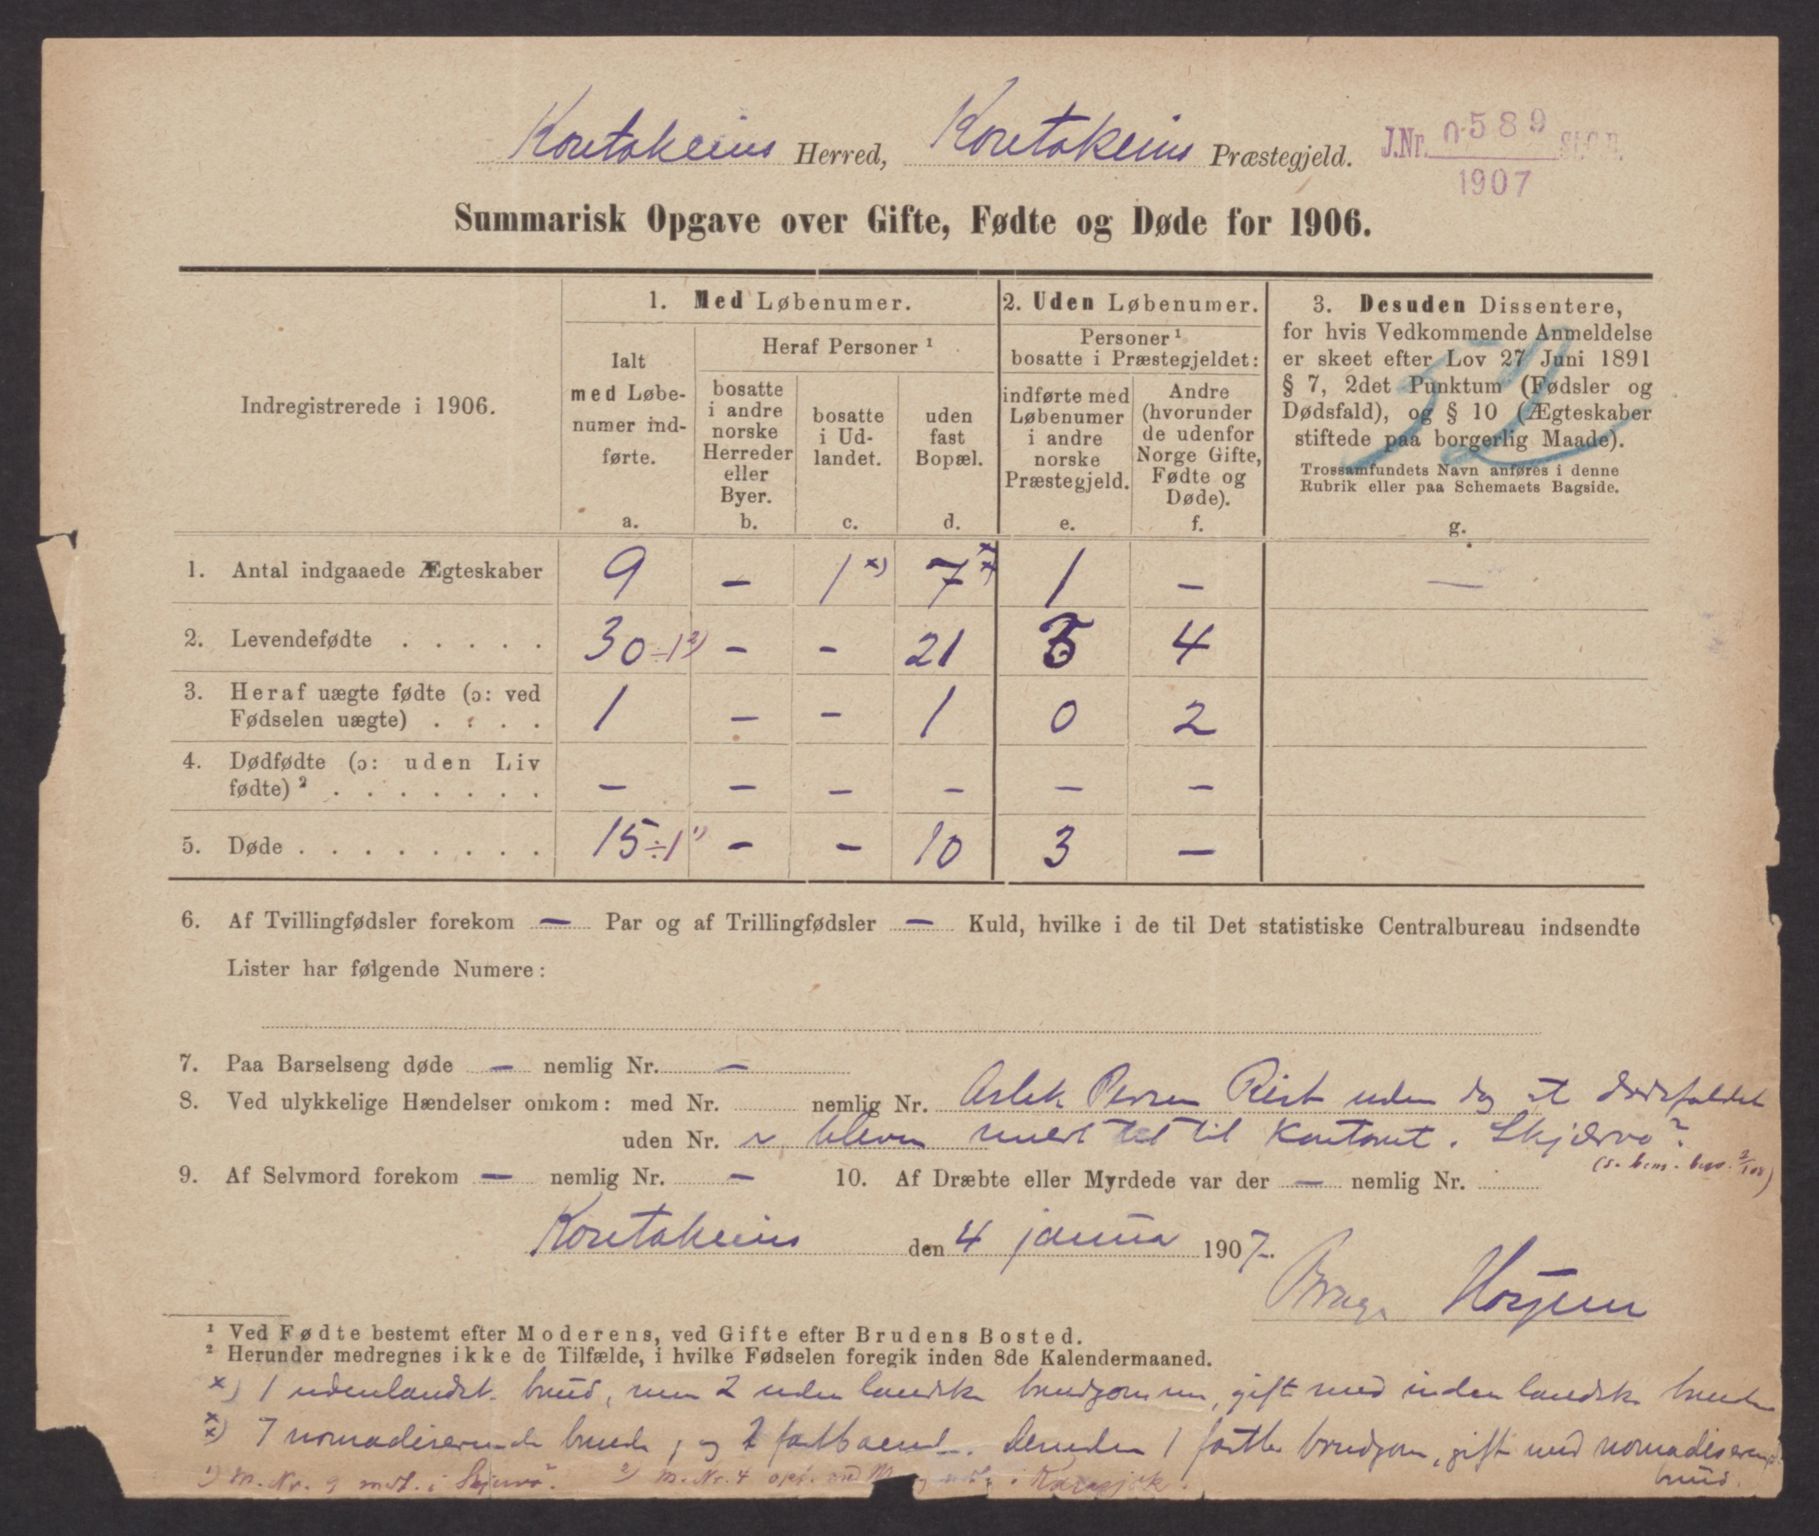 Koutokeino Herred, Koutokeino Præstegjeld. J.Nr. 0589 St.C.B.
1907
Summarisk Opgave over Gifte, Fødte og Døde for 1906.
Indregistrerede i 1906.
1. Med Løbenumer.
Ialt
med Løbe-
numer ind-
førte.
a.
Heraf Personer ¹
bosatte
i andre
norske
Herreder
eller
Byer.
b.
bosatte
i Ud-
landet.
c.
uden
fast
Bopæl.
d.
2. Uden Løbenumer.
Personer ¹
bosatte i Præstegjeldet:
indførte med
Løbenumer
i andre
norske
Præstegjeld.
e.
Andre
(hvorunder
de udenfor
Norge Gifte,
Fødte og
Døde).
f.
3. Desuden Dissentere,
for hvis Vedkommende Anmeldelse
er skeet efter Lov 27 Juni 1891
§ 7, 2det Punktum (Fødsler og
Dødsfald), og § 10 (Ægteskaber
stiftede paa borgerlig Maade).
Trossamfundets Navn anføres i denne
Rubrik eller paa Schemaets Bagside.
g.
1. Antal indgaaede Ægteskaber 9 – 1 x) 7 x x 1 – –
2. Levendefødte . . . . . 30 ÷1 2) – – 21 4
3. Heraf uægte fødte (ɔ: ved
Fødselen uægte) . . . . 1 – – 1 0 2
4. Dødfødte (ɔ: uden Liv
fødte) ² . . . . . . . – – – – – –
5. Døde . . . . . . . . 15 ÷1 1) – – 10 3 –
6. Af Tvillingfødsler forekom – Par og af Trillingfødsler – Kuld, hvilke i de til Det statistiske Centralbureau indsendte
Lister har følgende Numere:
7. Paa Barselseng døde – nemlig Nr. –
8. Ved ulykkelige Hændelser omkom: med Nr. nemlig Nr. Aslek Persen uden dødsfaldet
uden Nr. bleven meldt til kontoret. Skjærvø?
9. Af Selvmord forekom – nemlig Nr. – 10. Af Dræbte eller Myrdede var der – nemlig Nr.
Koutokeino den 4 januar 1907.
¹ Ved Fødte bestemt efter Moderens, ved Gifte efter Brudens Bosted.
² Herunder medregnes ikke de Tilfælde, i hvilke Fødselen foregik inden 8de Kalendermaaned.
x) 1 udenlandsk brud, men 2 udenlandske brudgomme, gift med indenlandske brude
x x) 7 nomadiserende brude, og 2 fastboende. Desuden 1 brudgom, gift med nomadiserende
brud.
1) M. Nr. 9 i Skjervø? 2) M. Nr. 4 i Karasjok.